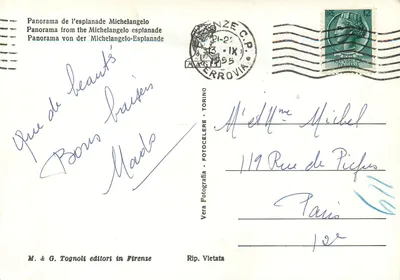 Panorama de l'esplanade Michelangelo
Panorama from the Michelangelo esplanade
Panorama von der Michelangelo-Esplanade
FIRENZE C.P.
13 . IX
1955
FERROVIA
Que de beautés
Bons baisers
Mado
Vera Fotografia - FOTOCELERE - TORINO
M et Mme Michel
119 Rue de Picpus
Paris
12e
M. & G. Tognoli editori in Firenze
Rip. Vietata